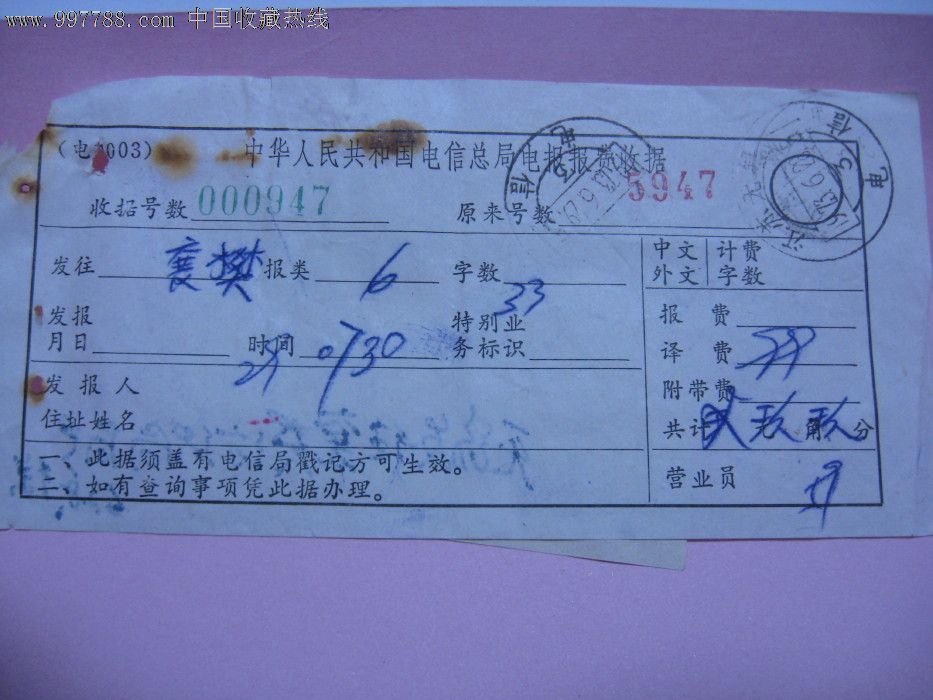 www.997788.com 中国收藏热线
(电1003) 中华人民共和国电信总局电报报费收据
收据号数 000947 原来号数 5947
发往 襄樊 报类 6 字数 33
中文 计费
外文 字数
发报
月日 29 时间 0730
特别业
务标识
报费
译费
附带费
发报人
住址姓名
共计 贰元玖角玖分
一、此据须盖有电信局戳记方可生效。
二、如有查询事项凭此据办理。
营业员